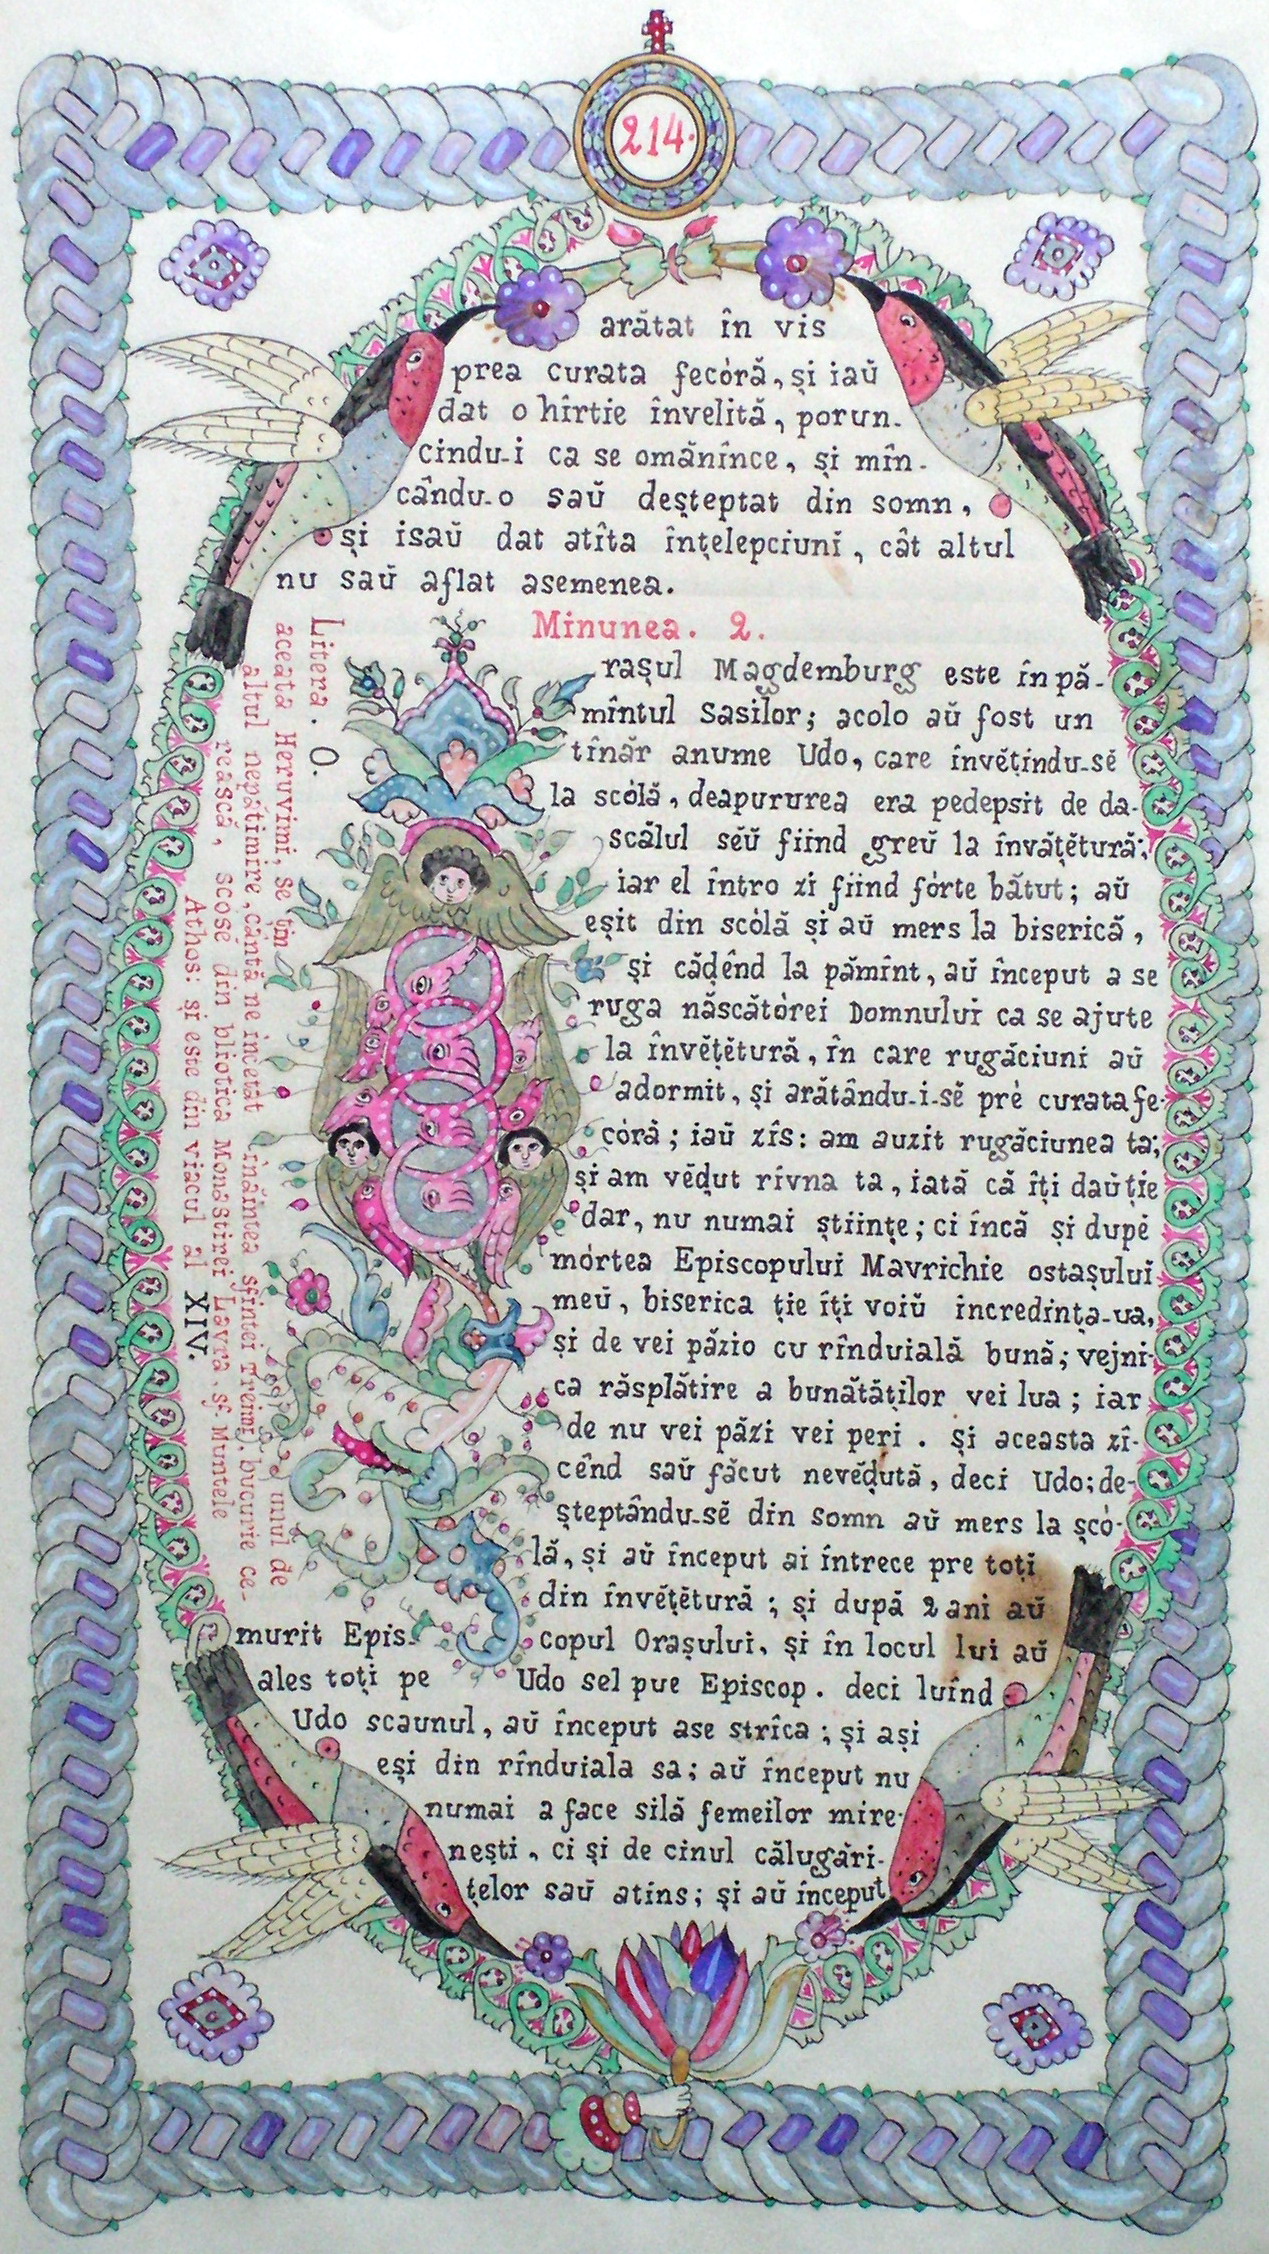 214.
arătat în vis
prea curata fecóră, și iaŭ
dat o hîrtie învelită, porun-
cindu-i ca se omănînce, și mîn-
cându-o saŭ deșteptat din somn,
și isaŭ dat atîta înțelepciuni, cât altul
nu saŭ aflat asemenea.
Minunea. 2.
rașul Magdemburg este în pă-
mîntul Sasilor; acolo aŭ fost un
tînăr anume Udo, care învĕțindu-sĕ
la scólă, deapururea era pedepsit de da-
scălul sĕŭ fiind greŭ la învățĕtură;
iar el întro zi fiind fórte bătut; aŭ
eșit din scólă și aŭ mers la biserică,
și cădênd la pămînt, aŭ început a se
ruga născătórei Domnului ca se ajute
la învĕțĕtură, în care rugăciuni aŭ
adormit, și arătându-i-sĕ pré curata fe-
córă; iaŭ zîs: am auzit rugăciunea ta;
și am vĕdut rîvna ta, iată că îți daŭ ție
dar, nu numai științe; ci încă și dupĕ
mórtea Episcopului Mavrichie ostașului
meŭ, biserica ție îți voiŭ incredința-ua,
și de vei păzio cu rînduială bună; vejni-
ca răsplătire a bunătăților vei lua; iar
de nu vei păzi vei peri. Și aceasta zî-
cênd saŭ făcut nevĕdută, deci Udo; de-
șteptându-sĕ din somn aŭ mers la șcó-
lă, și aŭ început ai întrece pre toți
din învĕțĕtură; și după 2 ani aŭ
murit Epis- copul Orașului, și în locul lui aŭ
ales toți pe Udo sel pue Episcop. deci luînd
Udo scaunul, aŭ început ase strîca; și ași
eși din rînduiala sa; aŭ început nu
numai a face silă femeilor mire-
nești, ci și de cinul călugări-
țelor saŭ atins; și aŭ început
Litera. O.
aceata Heruvimi, se țin unul de
altul nepătimire, cântă ne încetat înăintea sfintei Treimi. bucurie ce-
rească, scose din bliotica Monastirei Lavra. sf. Muntele
Athos: și este din viacul al XIV.